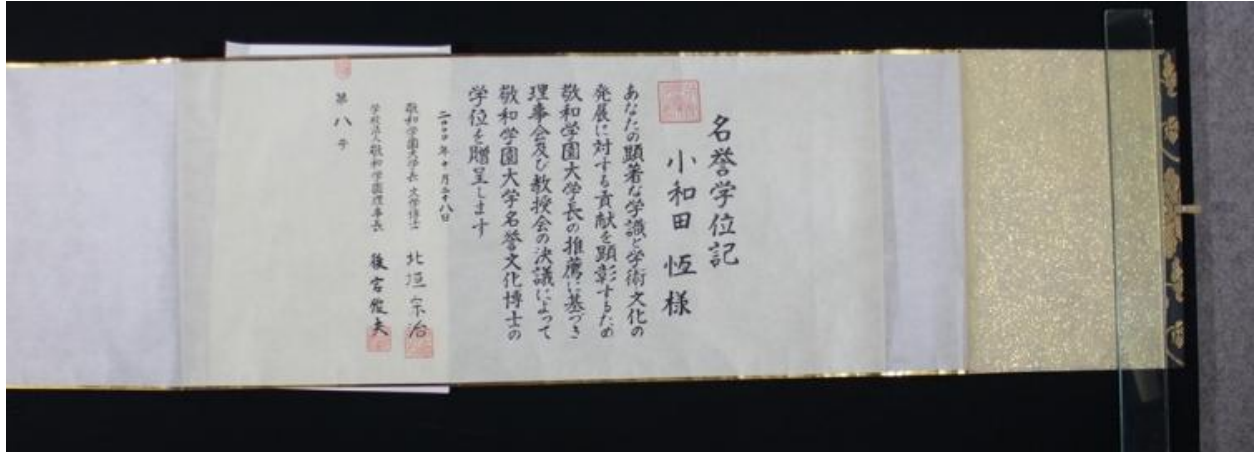 名誉学位記
小和田 恆 様
あなたの顕著な学識と学術文化の
発展に対する貢献を顕彰するため
敬和学園大学長の推薦に基づき
理事会及び教授会の決議によって
敬和学園大学名誉文化博士の
学位を贈呈します
二〇〇〇年十月二十八日
敬和学園大学長 文学博士 北垣宗治
学校法人敬和学園理事長 後宮俊夫
第八号